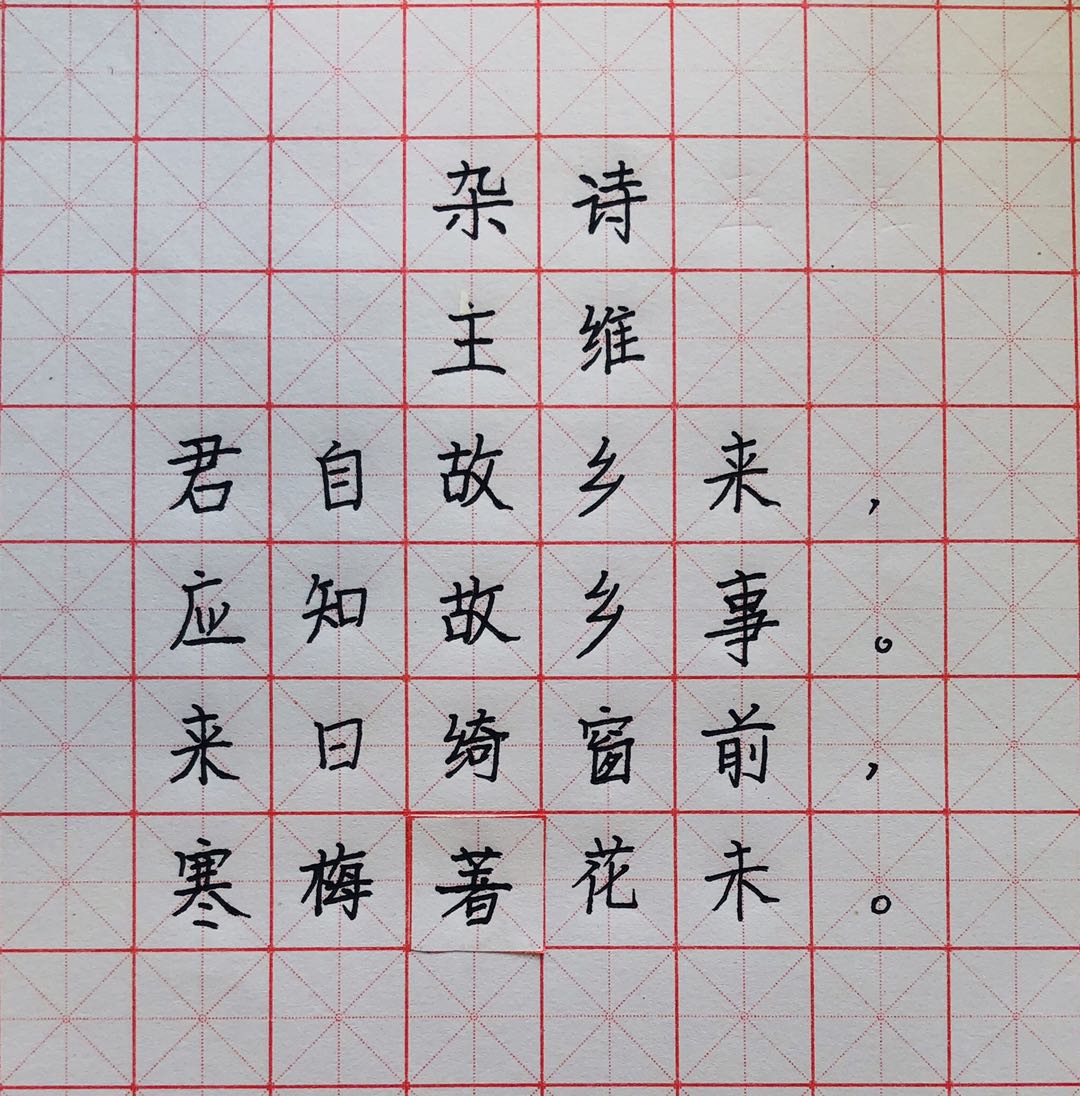 杂诗
主维
君自故乡来，
应知故乡事。
来日绮窗前，
寒梅著花未。